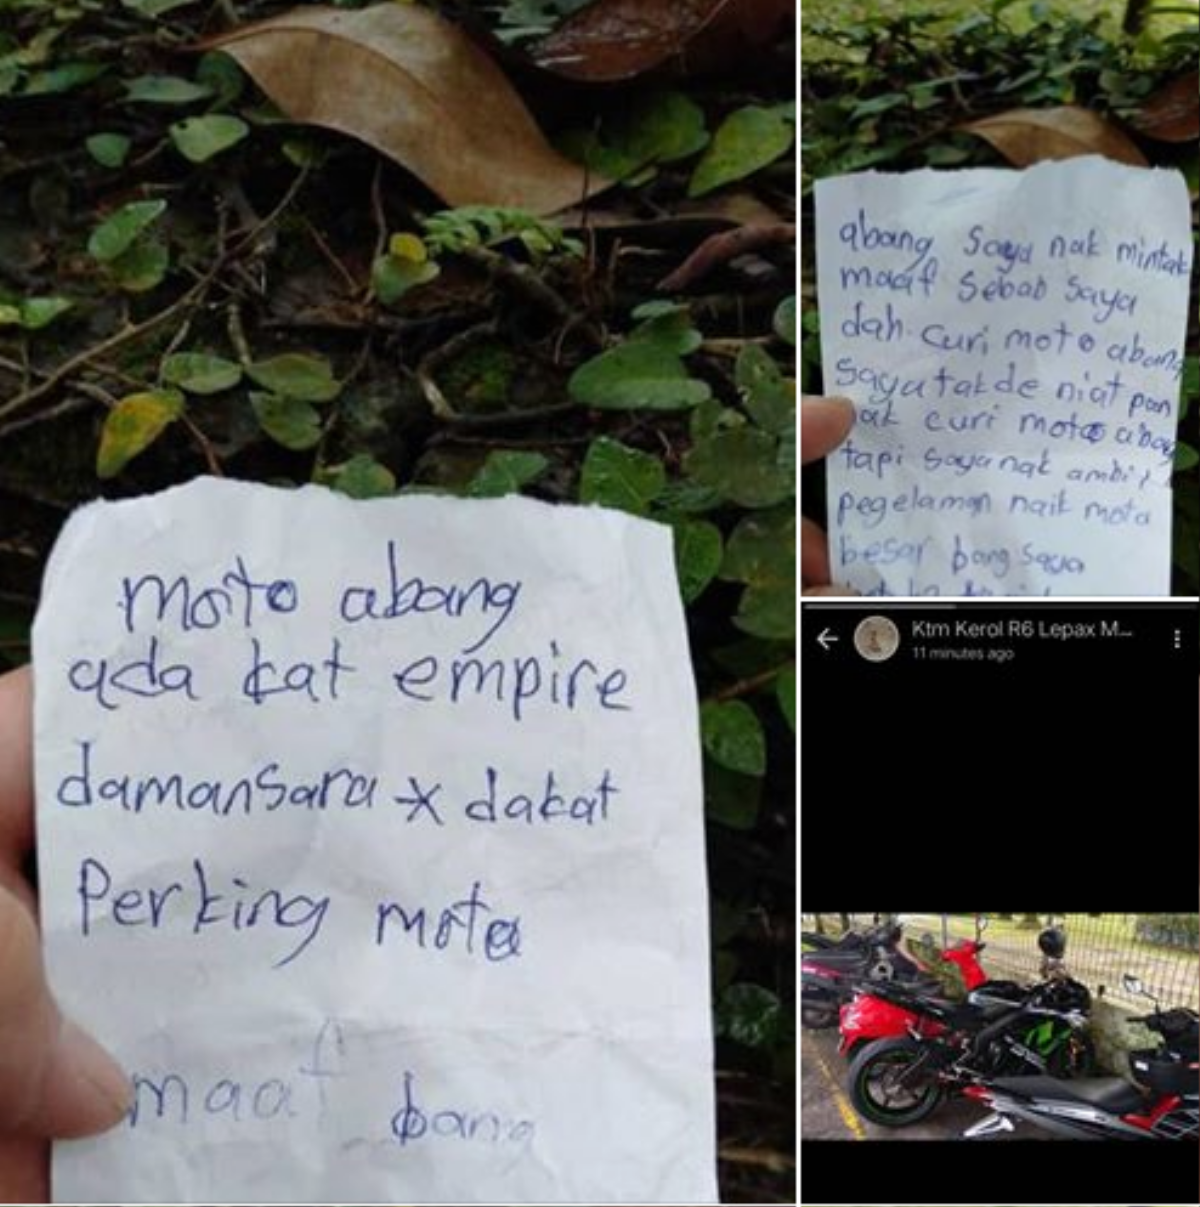 moto abang
ada kat empire
damansara dakat
Perking mota
maaf bang
abang saya nak mintak
maaf sebab saya
dah curi moto abang
saya takde niat pon
nak curi moto abang
tapi saya nak ambil
pegelaman naik mota
besar bang saya
Ktm Kerol R6 Lepax M...
11 minutes ago